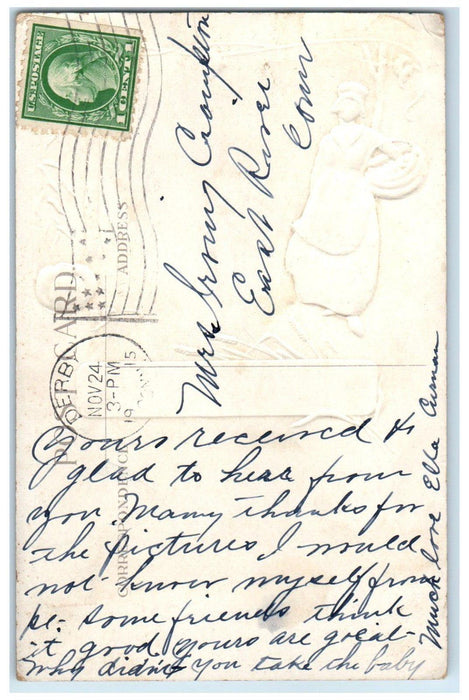 U.S. POSTAGE
1 CENT 1
DERBY
NOV 24
3-PM
1915
CONN.
POST CARD
CORRESPONDENCE
ADDRESS
Mrs Irving Crompton
East River
Conn
Yours received &
glad to hear from
you. Many thanks for
the pictures, I would
not know myself from
se- some friends think
it good yours are great-
why didn't you take the baby
Much love Ella